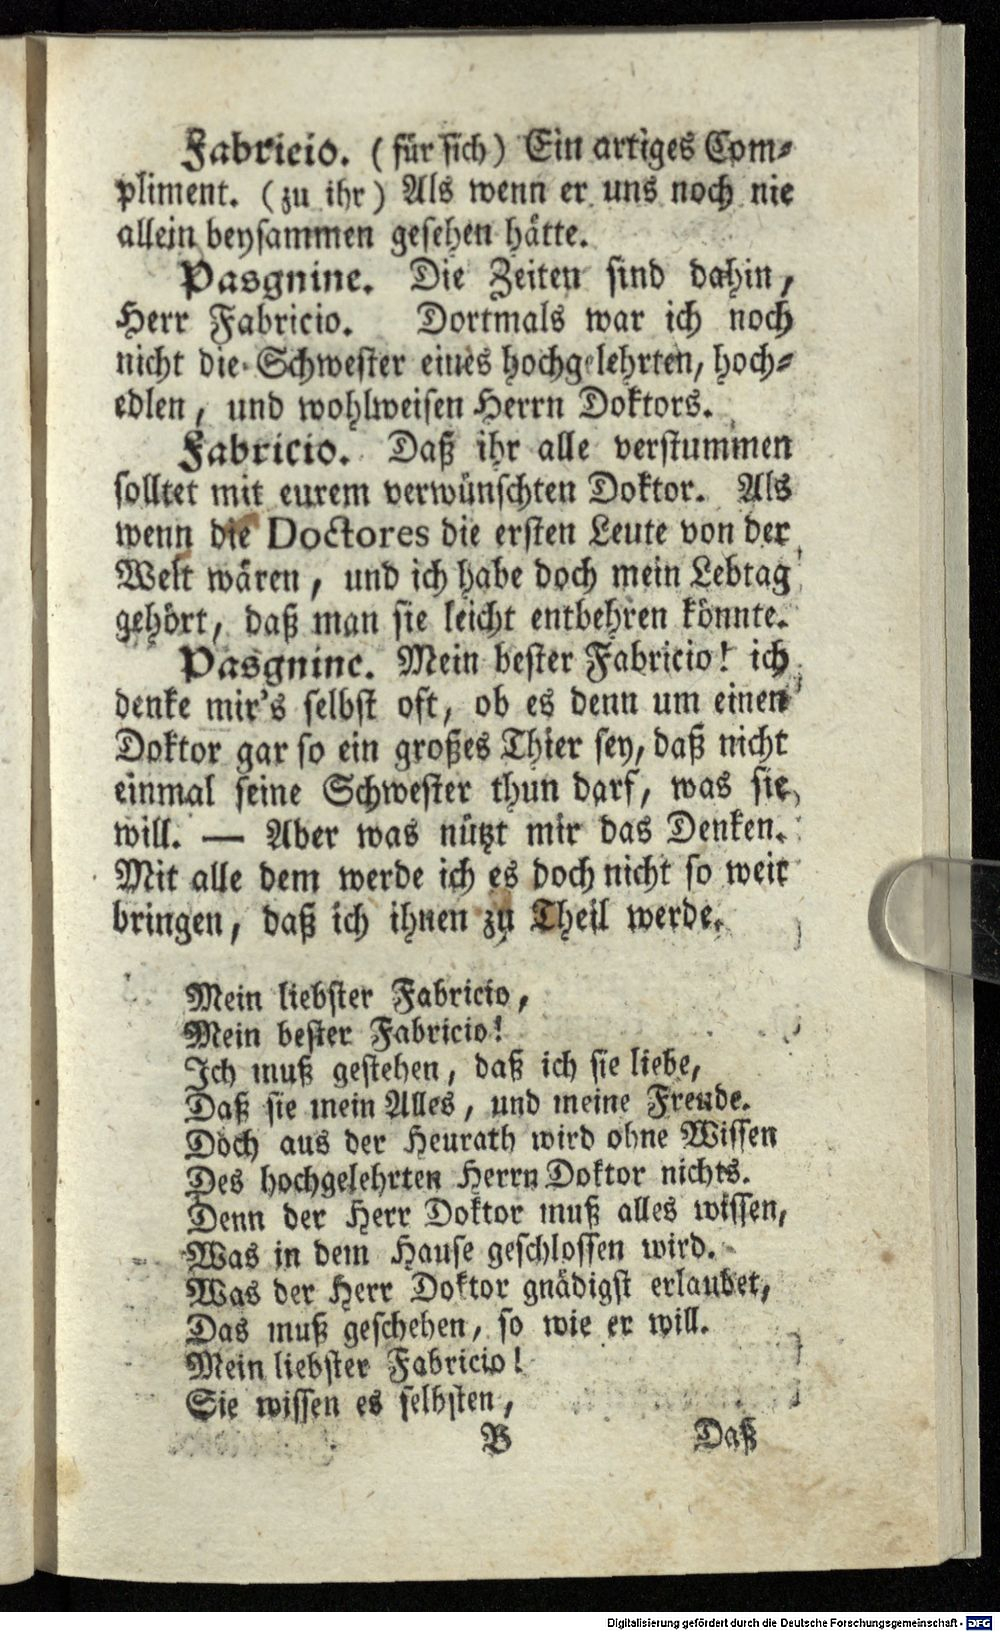 Fabricio. (für sich) Ein artiges Com-
pliment. (zu ihr) Als wenn er uns noch nie
allein beysammen gesehen hätte.
Pasgnine. Die Zeiten sind dahin,
Herr Fabricio. Dortmals war ich noch
nicht die Schwester eines hochgelehrten, hoch-
edlen, und wohlweisen Herrn Doktors.
Fabricio. Daß ihr alle verstummen
solltet mit eurem verwünschten Doktor. Als
wenn die Doctores die ersten Leute von der
Welt wären, und ich habe doch mein Lebtag
gehört, daß man sie leicht entbehren könnte.
Pasgnine. Mein bester Fabricio! ich
denke mir's selbst oft, ob es denn um einen
Doktor gar so ein großes Thier sey, daß nicht
einmal seine Schwester thun darf, was sie
will. — Aber was nützt mir das Denken.
Mit alle dem werde ich es doch nicht so weit
bringen, daß ich ihnen zu Theil werde.
Mein liebster Fabricio,
Mein bester Fabricio!
Ich muß gestehen, daß ich sie liebe,
Daß sie mein Alles, und meine Freude.
Doch aus der Heurath wird ohne Wissen
Des hochgelehrten Herrn Doktor nichts.
Denn der Herr Doktor muß alles wissen,
Was in dem Hause geschlossen wird.
Was der Herr Doktor gnädigst erlaubet,
Das muß geschehen, so wie er will.
Mein liebster Fabricio!
Sie wissen es selbsten,
B Daß
Digitalisierung gefördert durch die Deutsche Forschungsgemeinschaft - DFG